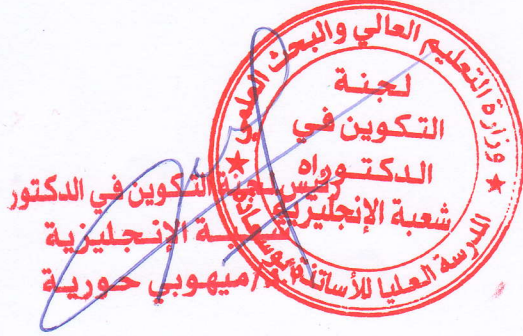 وزارة التعليم العالي والبحث العلمي
لجنة
التكوين في
الدكتوراه
شعبة الإنجليزية
المدرسة العليا للأساتذة
رئيس لجنة التكوين في الدكتور
الإنجليزية
ميهوبي حورية